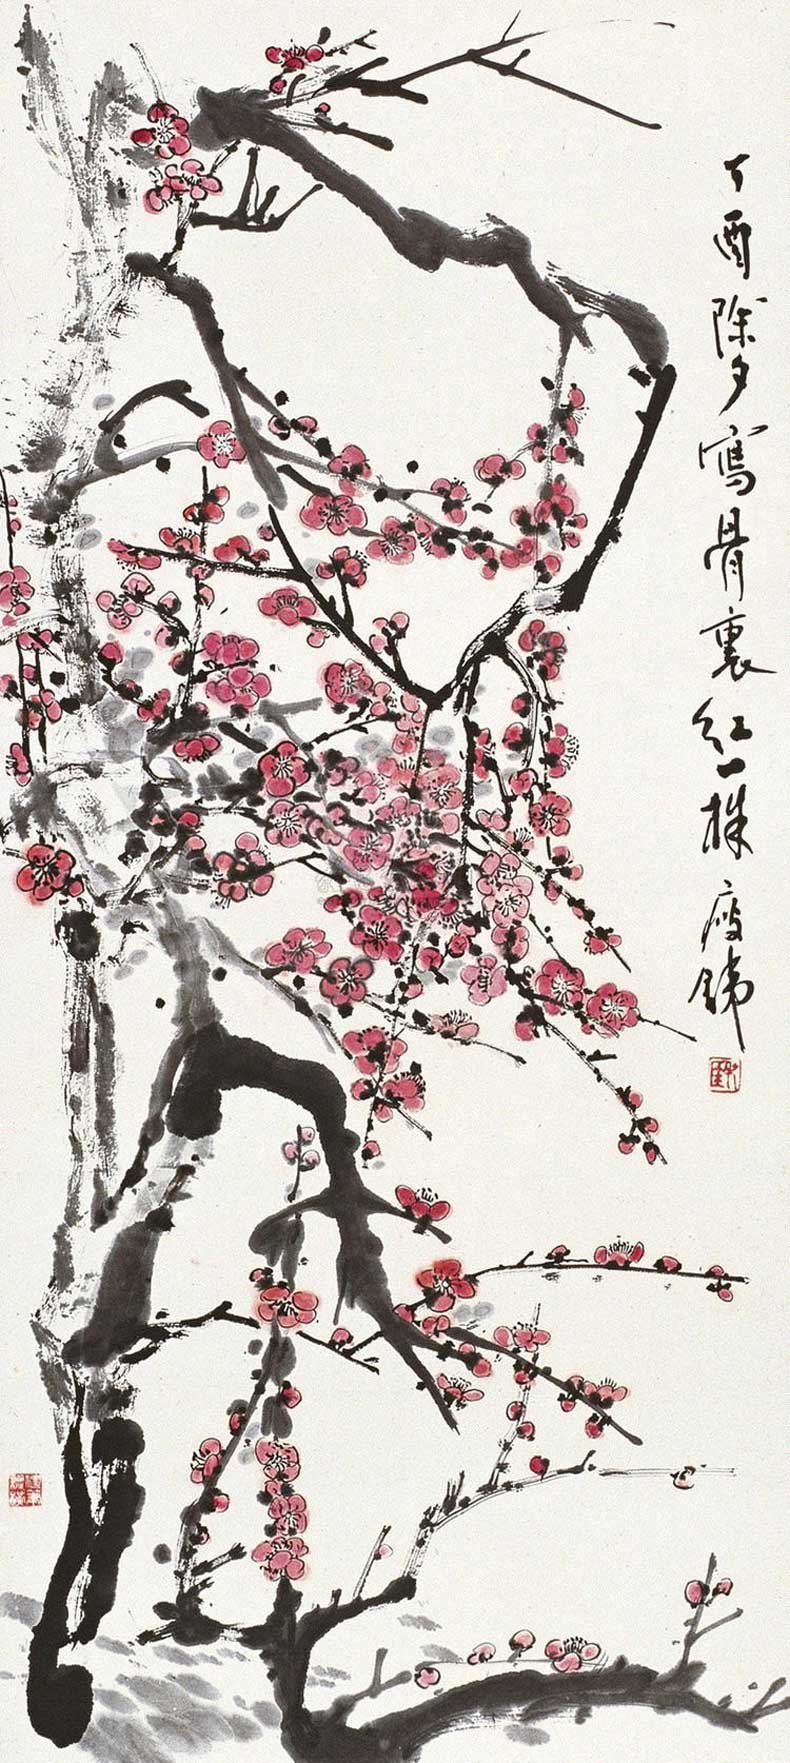 丁酉除夕寫骨裏紅一株 瘦鐵